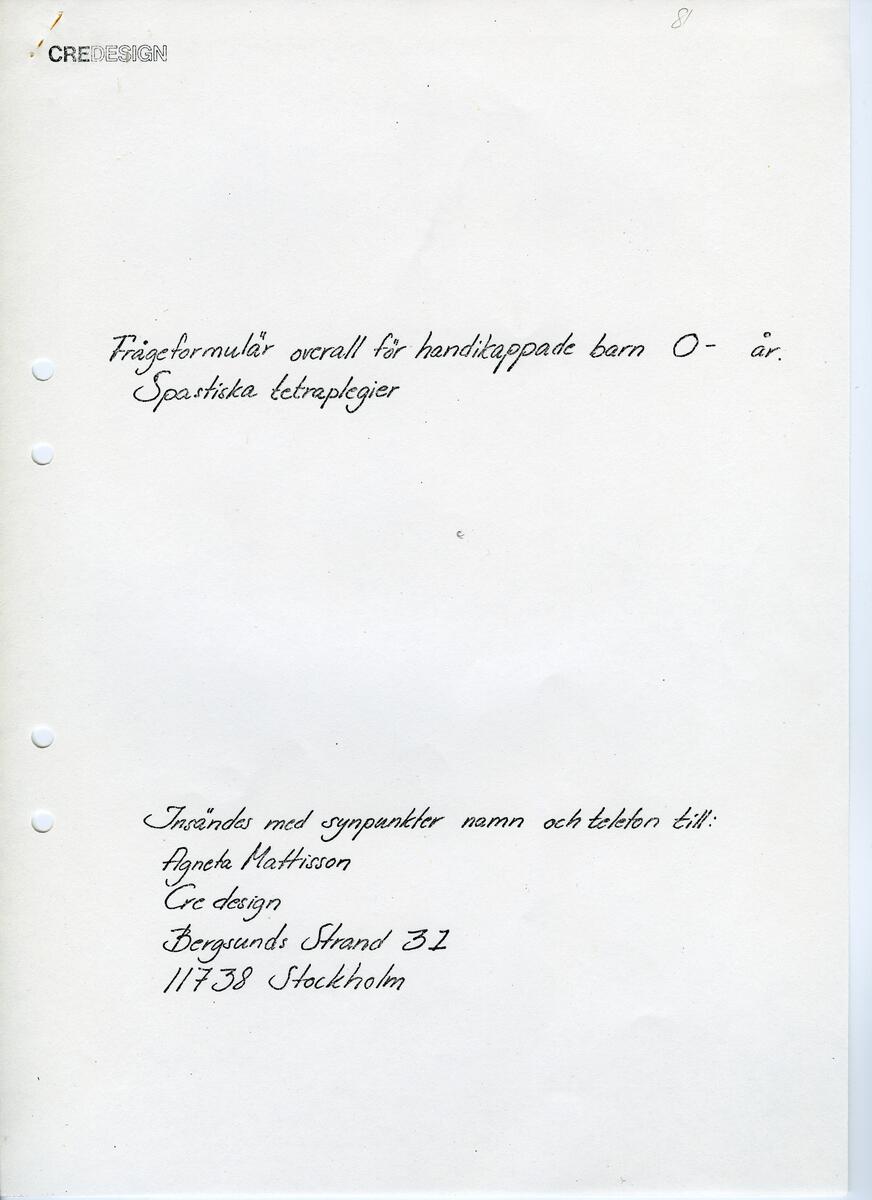 81
CREDESIGN
Frågeformulär overall för handikappade barn 0- år.
Spastiska tetraplegier
Insändes med synpunkter namn och telefon till:
Agneta Mattisson
Cre design
Bergsunds Strand 31
11738 Stockholm